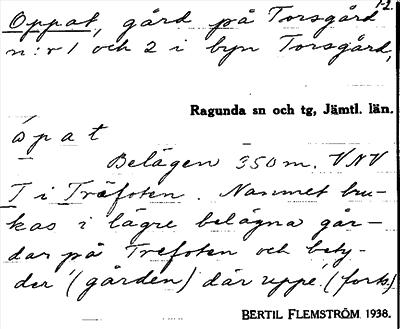 1-2.
Oppat, gård på Torsgård
n:r 1 och 2 i byn Torsgård,
Ragunda sn och tg, Jämtl. län.
ò p a t
Belägen 350 m. VNV
T i Träfoten. Namnet bru-
kas i lägre belägna går-
dar på Trefoten och bety-
der "(gården) där uppe. (forts.)
BERTIL FLEMSTRÖM 1938.